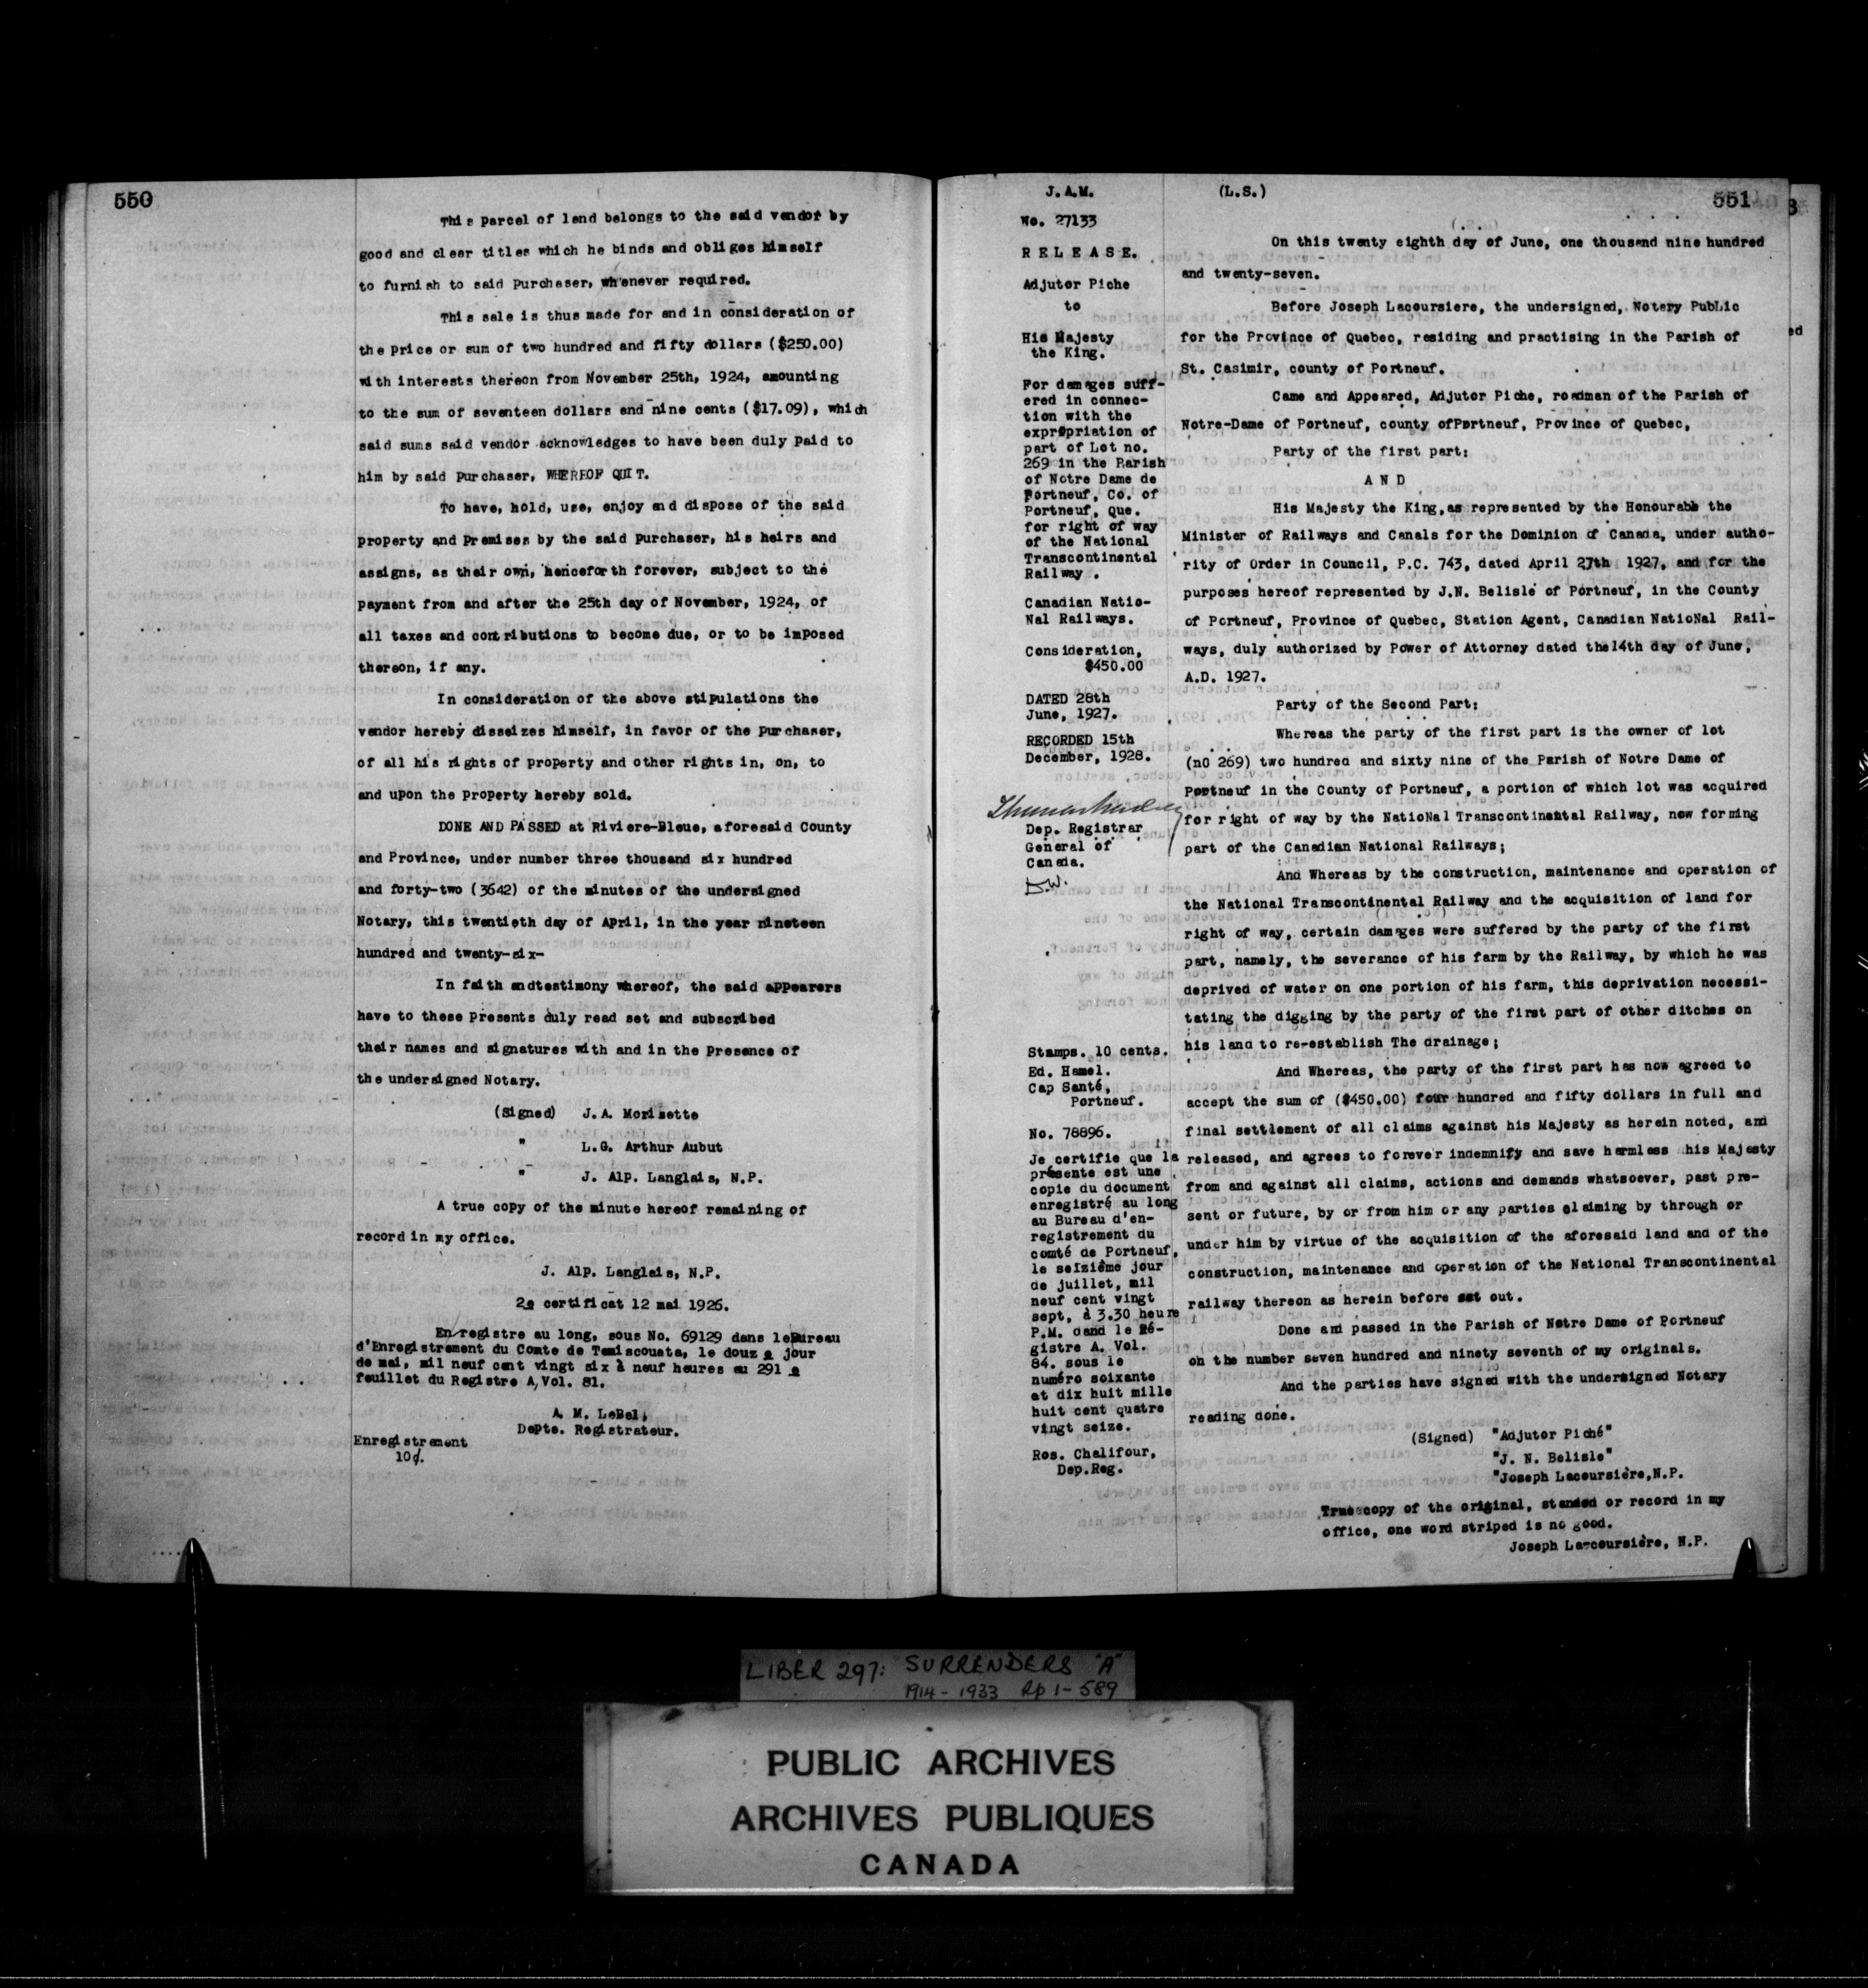 550
This parcel of land belongs to the said vendor by
good and clear titles which he binds and obliges himself
to furnish to said Purchaser, whenever required.
This sale is thus made for and in consideration of
the price or sum of two hundred and fifty dollars ($250.00)
with interests thereon from November 25th, 1924, amounting
to the sum of seventeen dollars and nine cents ($17.09), which
said sums said vendor acknowledges to have been duly paid to
him by said Purchaser, WHEREOF QUIT.
To have, hold, use, enjoy and dispose of the said
property and Premises by the said Purchaser, his heirs and
assigns, as their own, henceforth forever, subject to the
payment from and after the 25th day of November, 1924, of
all taxes and contributions to become due, or to be imposed
thereon, if any.
In consideration of the above stipulations the
vendor hereby disseizes himself, in favor of the Purchaser,
of all his rights of property and other rights in, on, to
and upon the Property hereby sold.
DONE AND PASSED at Riviere-Bleue, aforesaid County
and Province, under number three thousand six hundred
and forty-two (3642) of the minutes of the undersigned
Notary, this twentieth day of April, in the year nineteen
hundred and twenty-six-
In faith andtestimony whereof, the said appearers
have to these Presents duly read set and subscribed
their names and signatures with and in the Presence of
the undersigned Notary.
(Signed) J.A. Morisette
" L.G. Arthur Aubut
" J. Alp. Langlais, N.P.
A true copy of the minute hereof remaining of
record in my office.
J. Alp. Langlais, N.P.
2e certificat 12 mai 1926.
En/registre au long, sous No. 69129 dans leBureau
d'Enregistrement du Comte de Temiscouata, le douz e jour
de mai, mil neuf cent vingt six à neuf heures au 291 e
feuillet du Registre A, Vol. 81.
A. M. LeBel,
Depte. Registrateur.
Enregistrement
10¢.
J.A.M.
No. 27133
RELEASE.
Adjutor Piche
to
His Majesty
the King.
For damages suff-
ered in connec-
tion with the
expropriation of
part of Lot no.
269 in the Parish
of Notre Dame de
Portneuf, Co. of
Portneuf, Que.
for right of way
of the National
Transcontinental
Railway .
Canadian Natio-
Nal Railways.
Consideration,
$450.00
DATED 28th
June, 1927.
RECORDED 15th
December, 1928.
Dep. Registrar
General of
Canada.
D.W.
Stamps. 10 cents.
Ed. Hamel.
Cap Santé,
Portneuf.
No. 78896.
Je certifie que la
présente est une
copie du document
enregistré au long
au Bureau d'en-
registrement du
comté de Portneuf,
le seizième jour
de juillet, mil
neuf cent vingt
sept, à 3.30 heure
P.M. dand le Ré-
gistre A. Vol.
84. sous le
numéro soixante
et dix huit mille
huit cent quatre
vingt seize.
Ros. Chalifour,
Dep.Reg.
(L.S.)
551
On this twenty eighth day of June, one thousand nine hundred
and twenty-seven.
Before Joseph Lacoursiere, the undersigned, Notary PubLic
for the Province of Quebec, residing and practising in the Parish of
St. Casimir, county of Portneuf.
Came and Appeared, Adjutor Piche, roadman of the Parish of
Notre-Dame of Portneuf, county ofPortneuf, Province of Quebec,
Party of the first part;
AND
His Majesty the King,as represented by the Honourable the
Minister of Railways and Canals for the Dominion of Canada, under autho-
rity of Order in Council, P.C. 743, dated April 27th 1927, and for the
purposes hereof represented by J.N. Belisle of Portneuf, in the County
of Portneuf, Province of Quebec, Station Agent, Canadian NatioNal Rail-
ways, duly authorized by Power of Attorney dated the14th day of June,
A.D. 1927.
Party of the Second Part;
Whereas the party of the first part is the owner of lot
(n0 269) two hundred and sixty nine of the Parish of Notre Dame of
Portneuf in the County of Portneuf, a portion of which lot was acquired
for right of way by the NatioNal Transcontinental Railway, now forming
part of the Canadian National Railways;
And Whereas by the construction, maintenance and operation of
the National Transcontinental Railway and the acquisition of land for
right of way, certain damages were suffered by the party of the first
part, namely, the severance of his farm by the Railway, by which he was
deprived of water on one portion of his farm, this deprivation necessi-
tating the digging by the party of the first part of other ditches on
his land to re-establish The drainage;
And Whereas, the party of the first part has now agreed to
accept the sum of ($450.00) four hundred and fifty dollars in full and
final settlement of all claims against his Majesty as herein noted, and
released, and agrees to forever indemnify and save harmless his Majesty
from and against all claims, actions and demands whatsoever, past pre-
sent or future, by or from him or any parties claiming by through or
under him by virtue of the acquisition of the aforesaid land and of the
construction, maintenance and operation of the National Transcontinental
railway thereon as herein before set out.
Done and passed in the Parish of Notre Dame of Portneuf
on the number seven hundred and ninety seventh of my originals.
And the parties have signed with the undersigned Notary
reading done.
(Signed) "Adjutor Piché"
"J. N. Belisle"
"Joseph Lacoursière,N.P.
True copy of the original, standed or record in my
office, one word striped is no good.
Joseph La-coursière, N.P.
LIBER 297: SURRENDERS "A"
1914 - 1933 Pp 1 - 589
PUBLIC ARCHIVES
ARCHIVES PUBLIQUES
CANADA